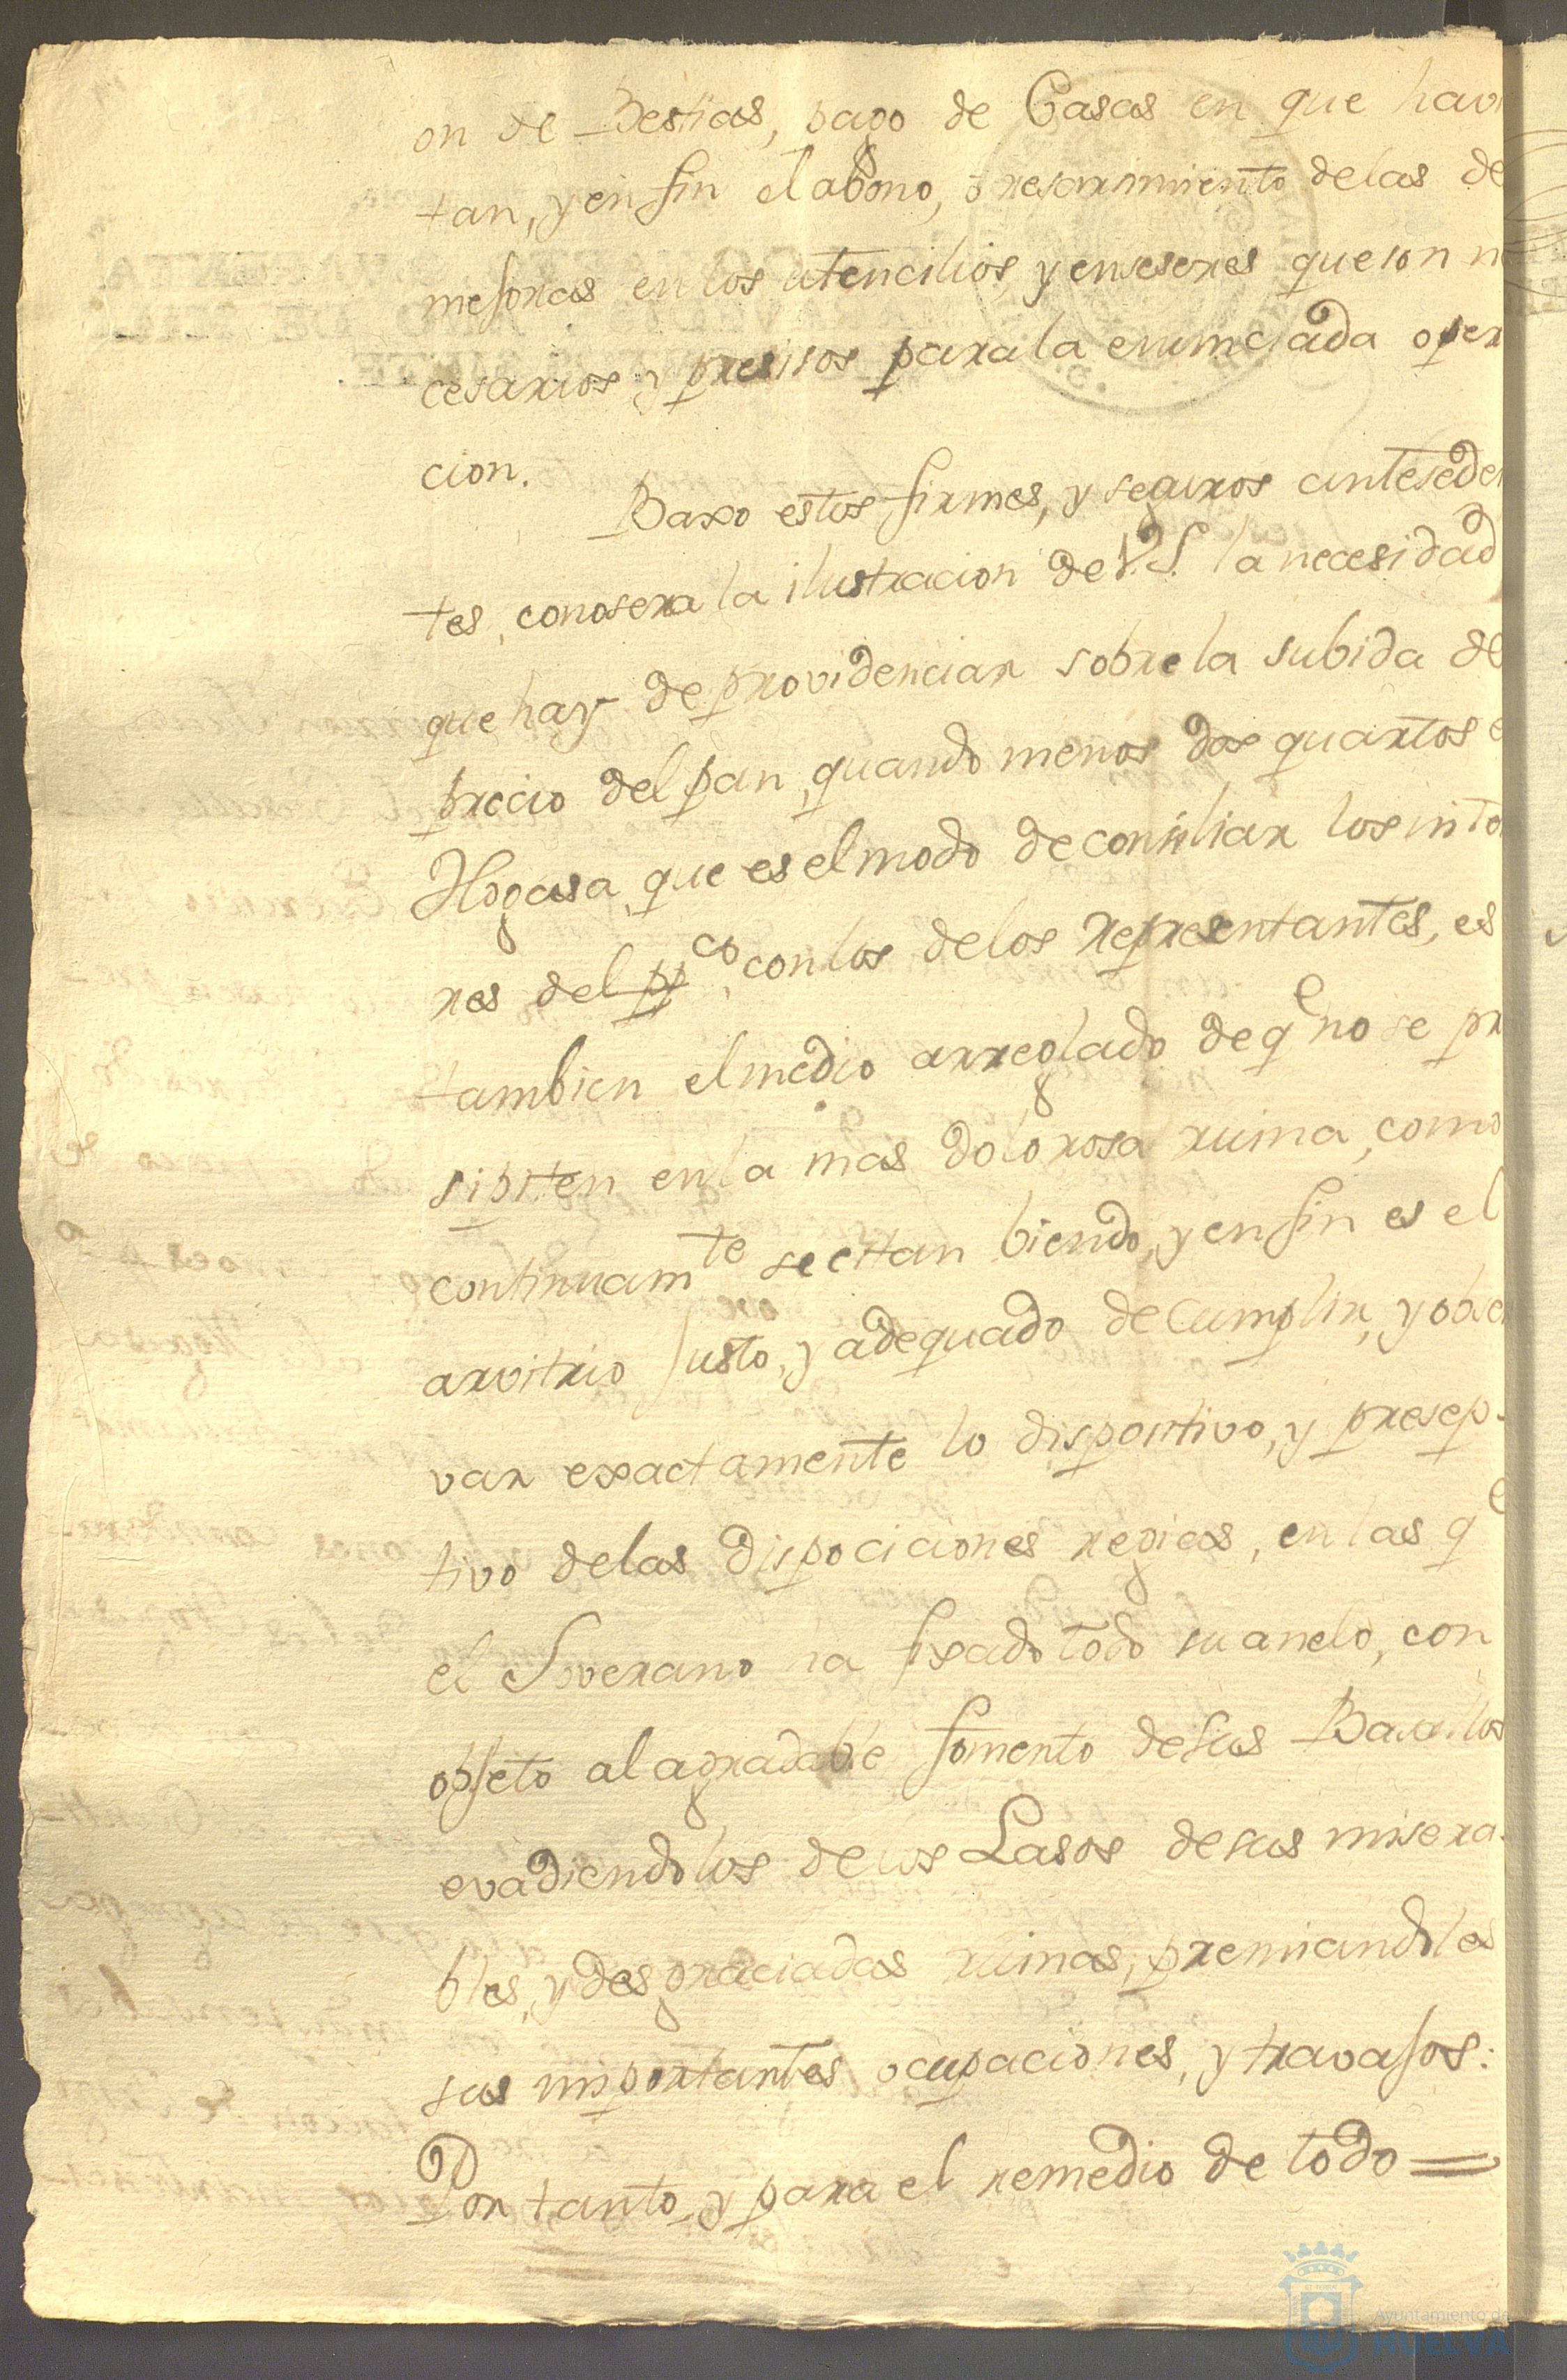 on de Bestias, pago de Casas en que havi
tan, y en fin el abono, o resarsimiento de las de
mejoras en los utencilios, y enseseres que son n
cesarios y presisos para la enunciada oper
cion.
Baxo estos firmes, y seguros anteseden
tes, conosera la ilustracion de V.S. la necesidad
que hay de providenciar sobre la subida de
precio del pan, quando menos dos quartos e
Hogasa, que es el modo de consiliar los inte
res del ppco, con los de los representantes, es
tambien el medio arreglado de qe no se pr
sipiten en la mas dolorosa ruina, como
continuamte se estan biendo, y en fin es el
arvitrio Justo, y adequado de Cumplir, y obser
var exactamente lo dispositivo, y presep-
tivo de las dispociciones regias, en las qe
el Soverano ha fixado todo su anelo, con
objeto al agradable fomento de sus Basallos
evadiendolos de los Lasos de sus misera-
bles, y desgraciadas ruinas, premiandoles
sus importantes ocupaciones, y travajos:
Por tanto, y para el remedio de todo =
Ayuntamiento de
HUELVA